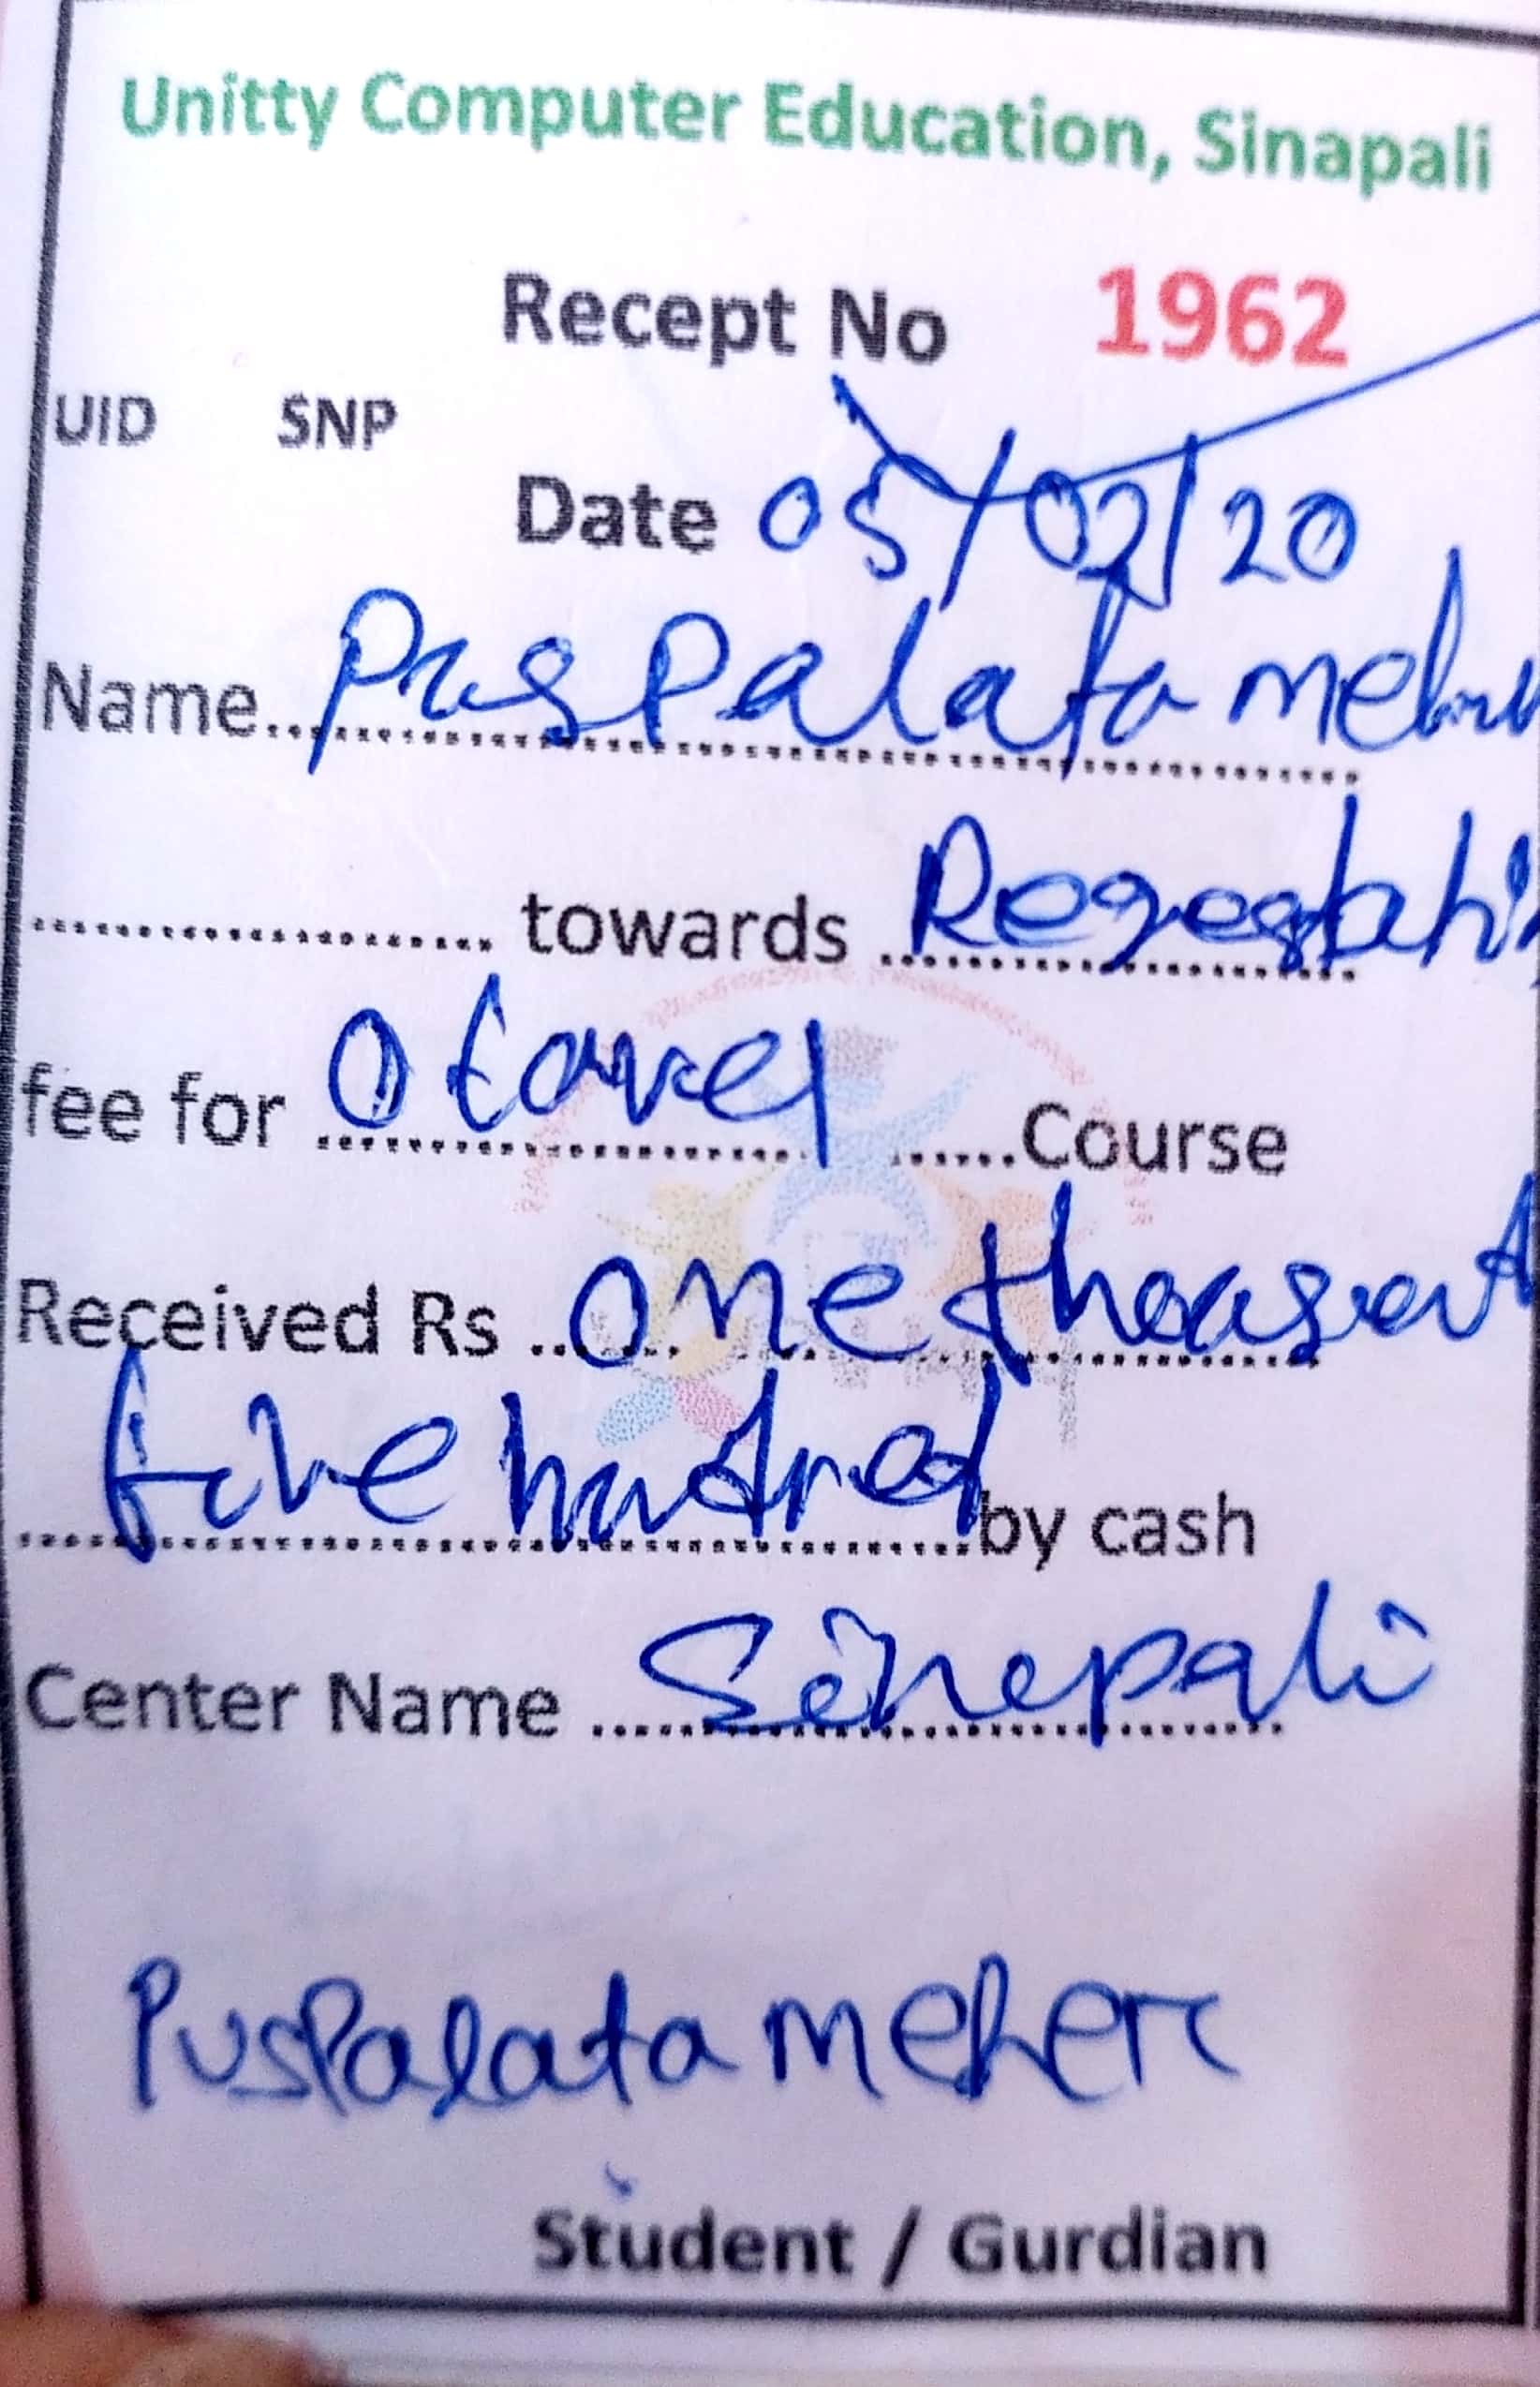 Unitty Computer Education, Sinapali
Recept No 1962
UID SNP
Date 05/02/20
Name Puspalata meher
towards
fee for O level Course
Received Rs one thousand
five hundred by cash
Center Name Sinepali
Puspalata meher
Student / Gurdian